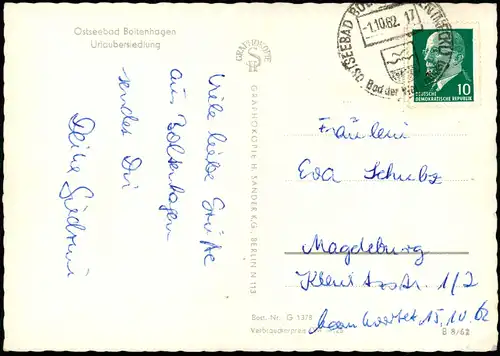 Ostseebad Boltenhagen
Urlaubersiedlung
Viele liebe Grüße
aus Boltenhagen
sendet Dir
Deine
GRAPHOKOPIE
GRAPHOKOPIE H. SANDER K.G., BERLIN N 113
OSTSEEBAD
-1.10.62.17
Bad der
10
DEUTSCHE
DEMOKRATISCHE REPUBLIK
Fräulein
Eva Schulz
Magdeburg
1/2
beantwortet 15.10.62
Best. Nr. G 1378
Verbraucherpreis
B 8/62